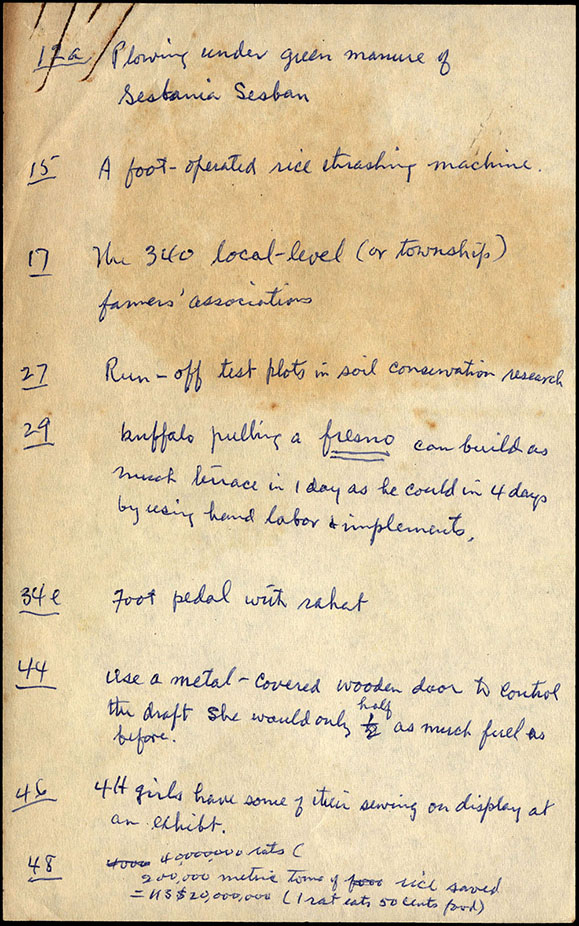 12a Plowing under green manure of
Sesbania Sesban
15 A foot-operated rice thrashing machine.
17 The 340 local-level (or township)
farmers' associations
27 Run-off test plots in soil conservation research
29 buffalo pulling a fresno can build as
much terrace in 1 day as he could in 4 days
by using hand labor & implements.
34e Foot pedal with rahat
44 Use a metal-covered wooden door to control
the draft She would only half 1/2 as much fuel as
before.
46 4H girls have some of their sewing on display at
an exhibt.
48 40,000,000 rats (
200,000 metric tons of food rice saved
= US $20,000,000 (1 rat eats 50 cents food)